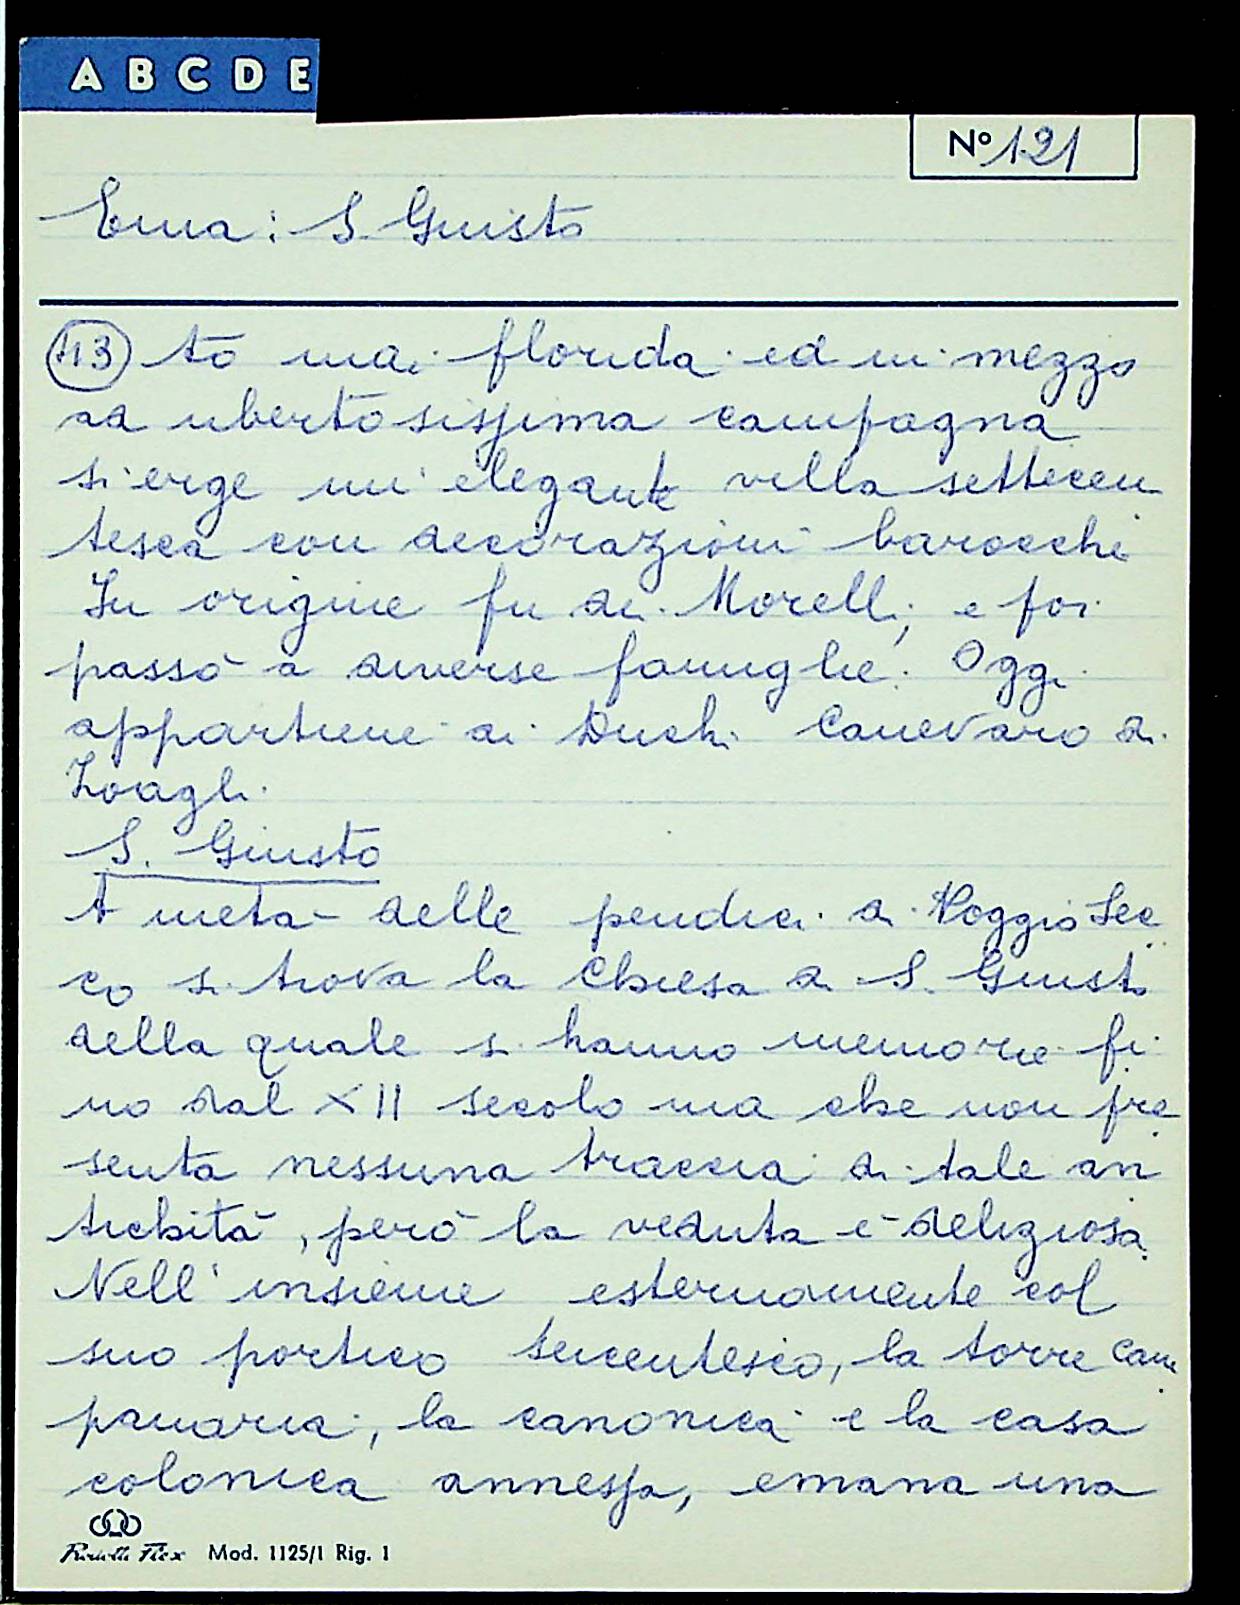 A B C D E
N° 121
Ema: S. Giusto
43 to ma florida ed in mezzo
ad ubertosissima campagna
si erge un' elegante villa settecen
tesca con decorazioni barocche
In origine fu dei Morelli, e poi
passò a diverse famiglie. Oggi
appartiene ai Duchi Canevaro di
Zoagli.
S. Giusto
A metà delle pendici di Poggio Sec
co si trova la Chiesa di S. Giusto
della quale si hanno memorie fi
no dal XII secolo ma che non pre
senta nessuna traccia di tale an
tichità, però la veduta è deliziosa.
Nell' insieme esternamente col
suo portico seicentesco, la torre cam
panaria, la canonica e la casa
colonica annessa, emana una
Flex Mod. 1125/1 Rig. 1